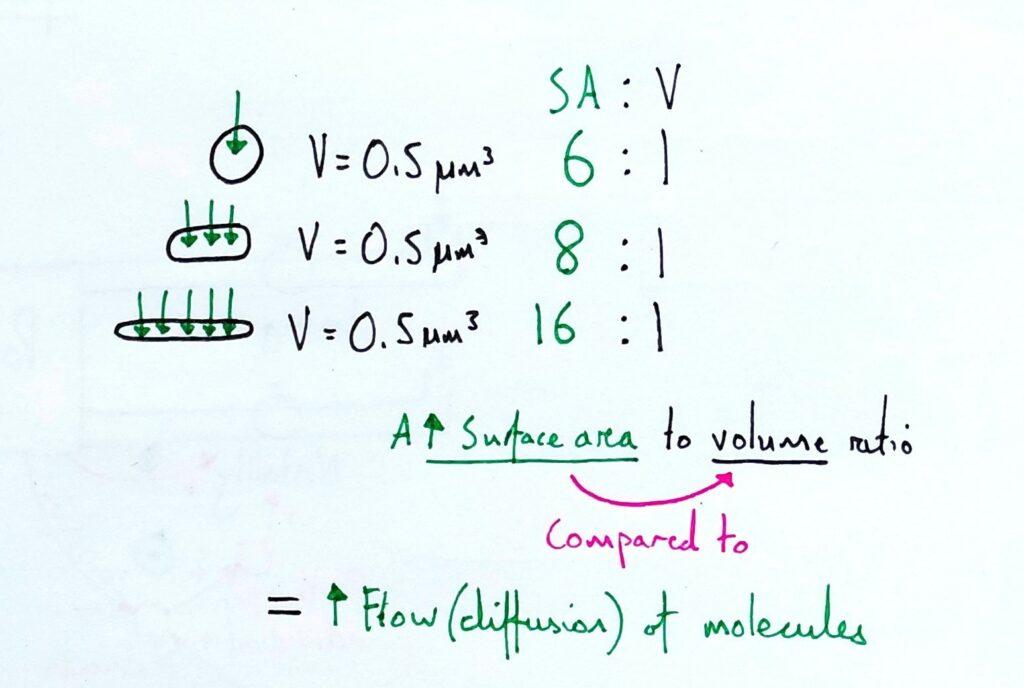 SA : V
V = 0.5 µm³ 6 : 1
V = 0.5 µm³ 8 : 1
V = 0.5 µm³ 16 : 1
A ↑ Surface area to volume ratio
Compared to
= ↑ Flow (diffusion) of molecules